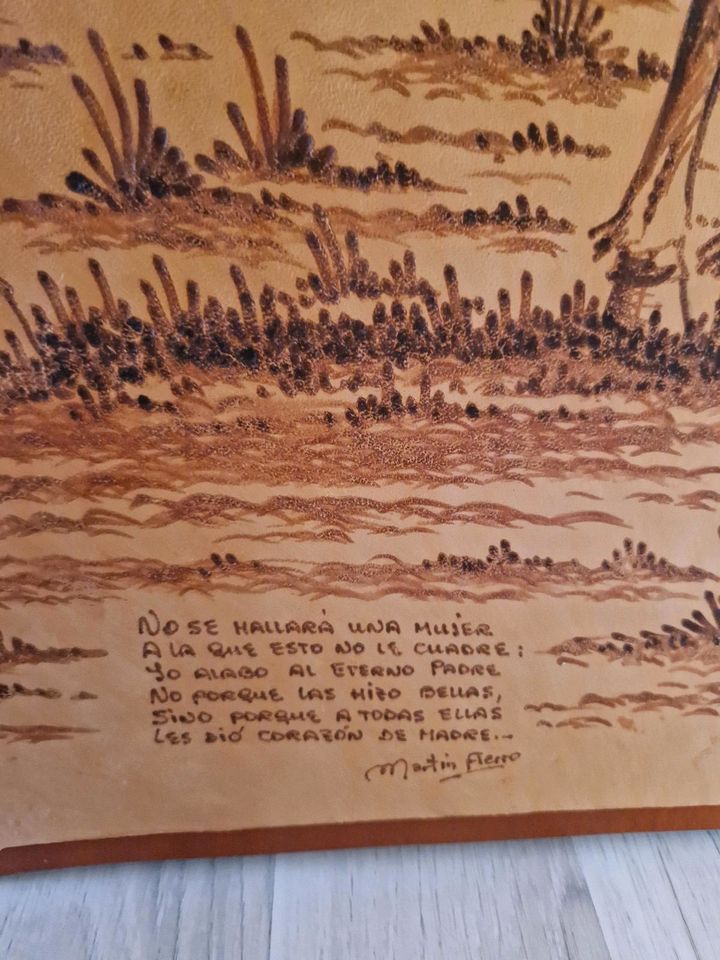 NO SE HALLARÁ UNA MUJER
A LA QUE ESTO NO LE CUADRE:
YO ALABO AL ETERNO PADRE
NO PORQUE LAS HIZO BELLAS,
SINO PORQUE A TODAS ELLAS
LES DIÓ CORAZÓN DE MADRE..-
Martin Fierro